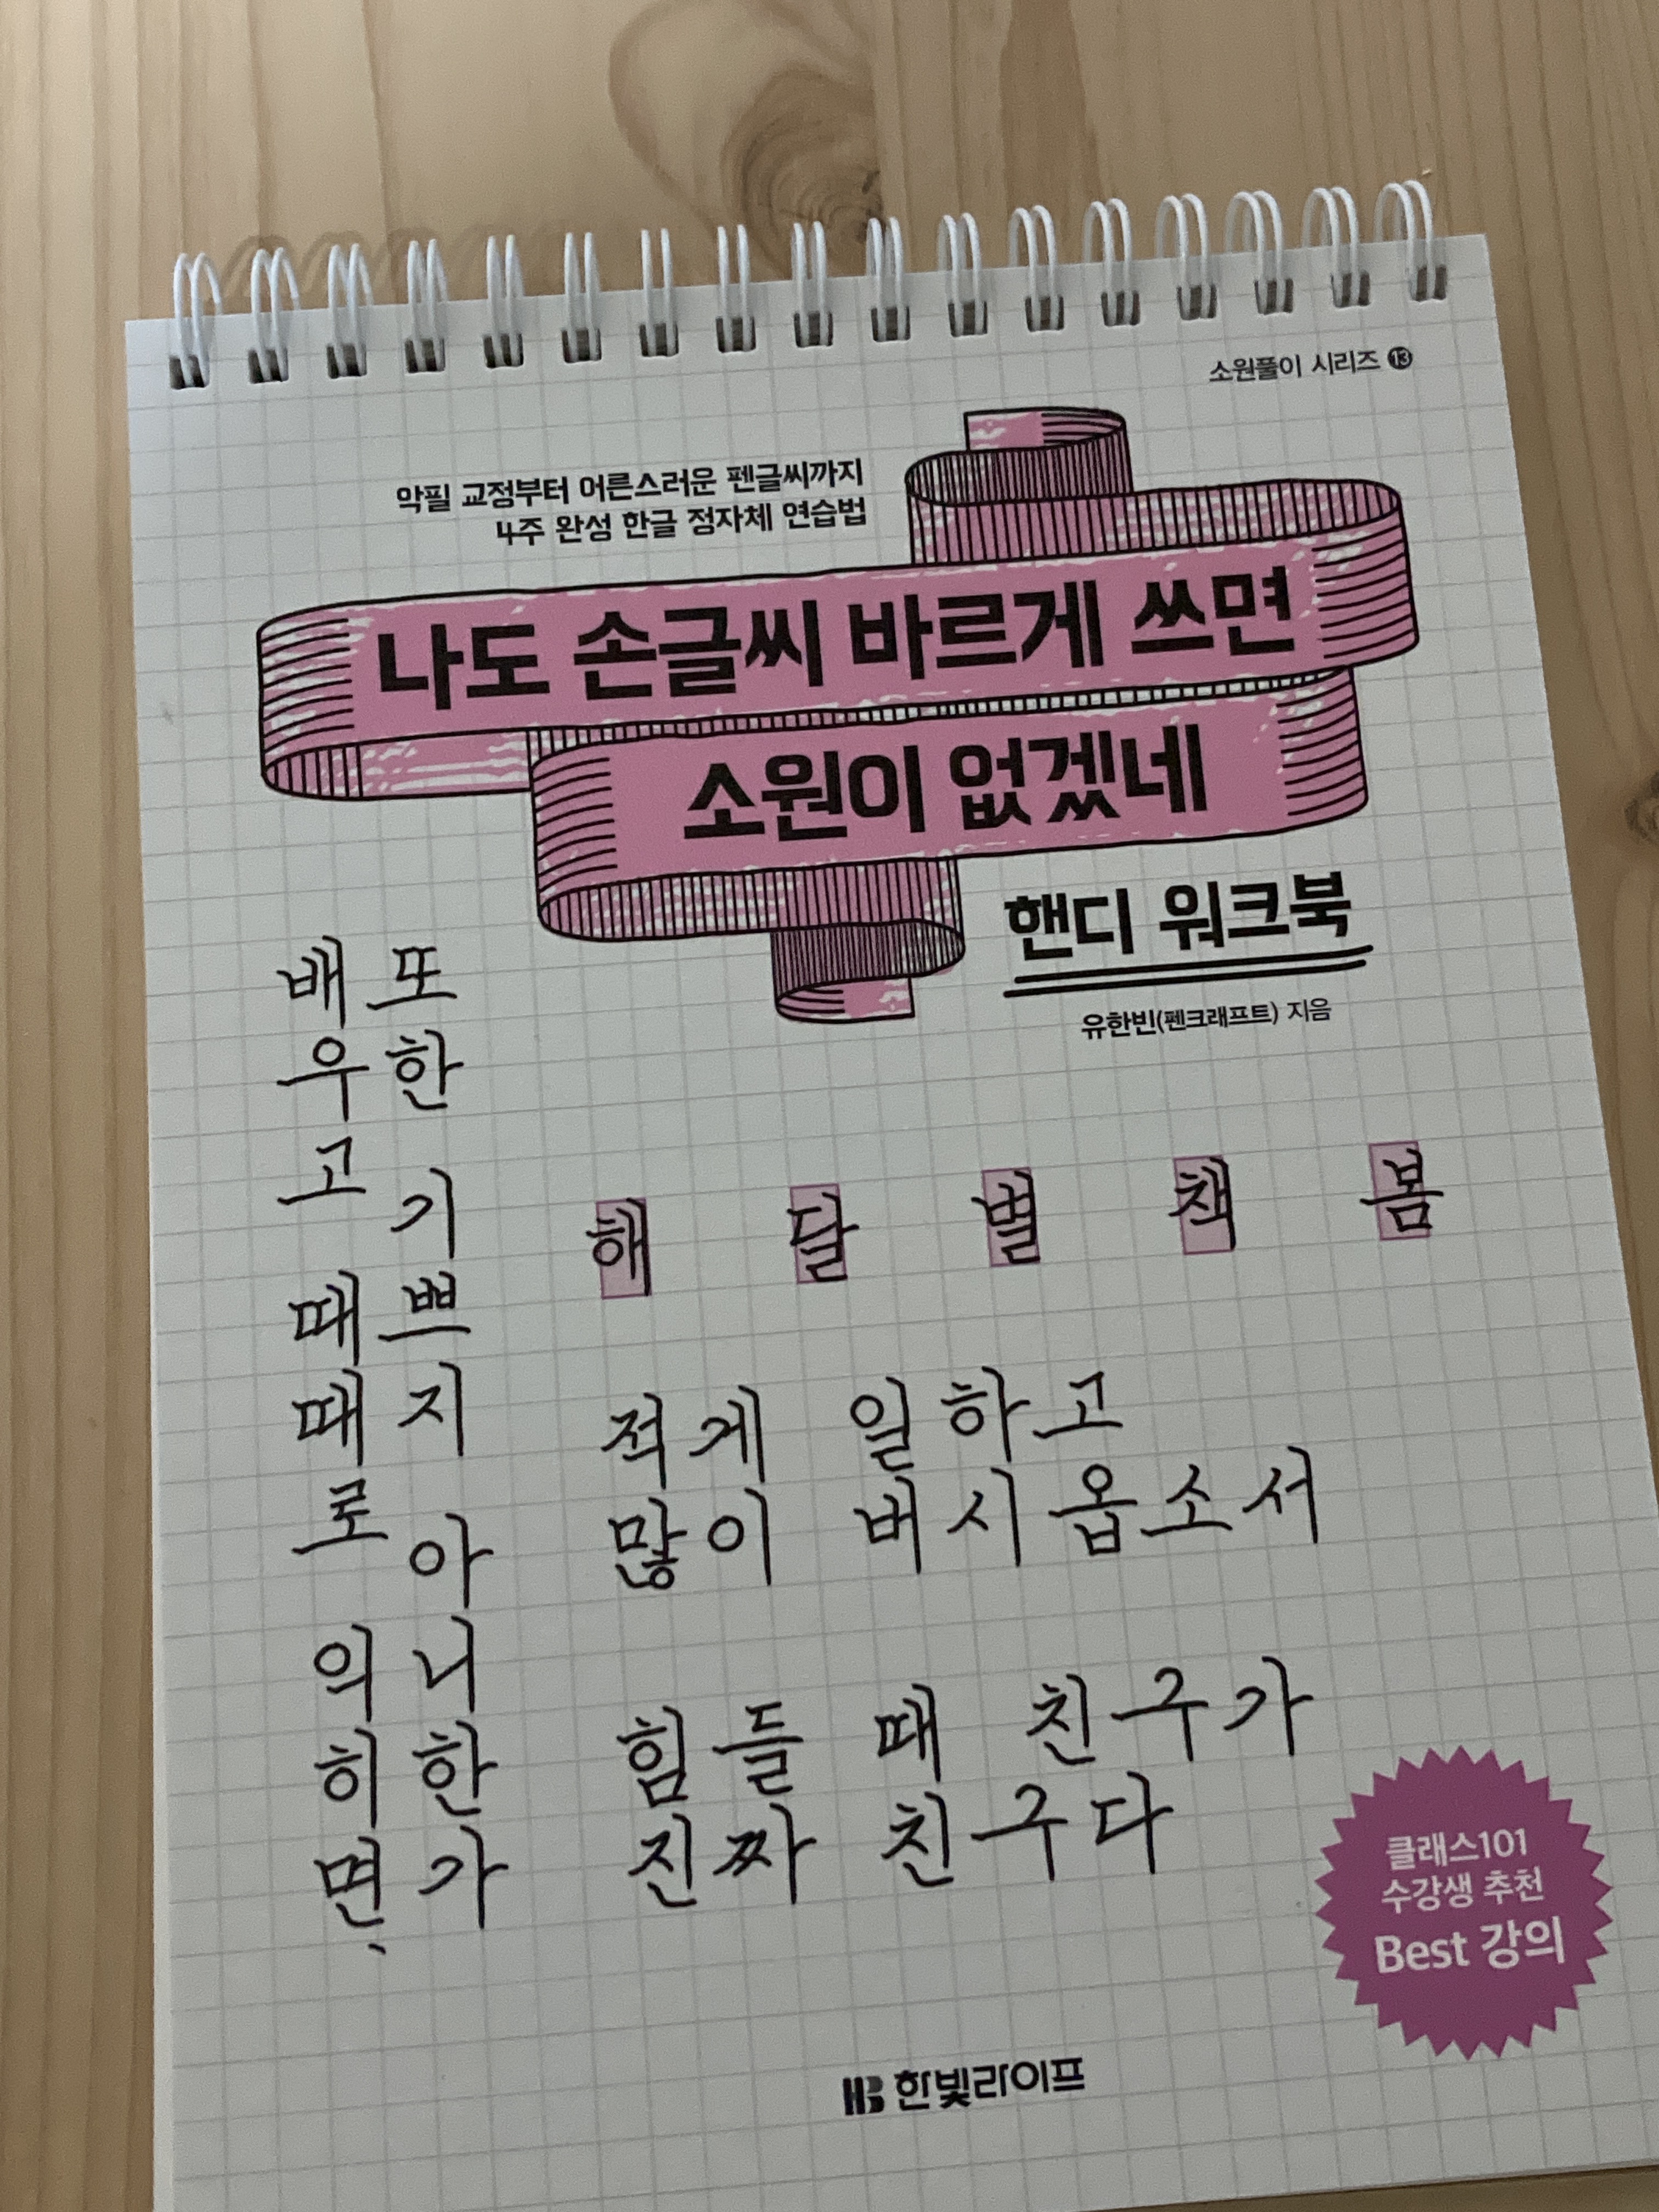 소원풀이 시리즈 ⓭
악필 교정부터 어른스러운 펜글씨까지
4주 완성 한글 정자체 연습법
나도 손글씨 바르게 쓰면
소원이 없겠네
핸디 워크북
유한빈(펜크래프트) 지음
배우고 때때로 익히면,
또한 기쁘지 아니한가
해 달 별 책 봄
적게 일하고
많이 버시옵소서
힘들 때 친구가
진짜 친구다
클래스101
수강생 추천
Best 강의
HB 한빛라이프